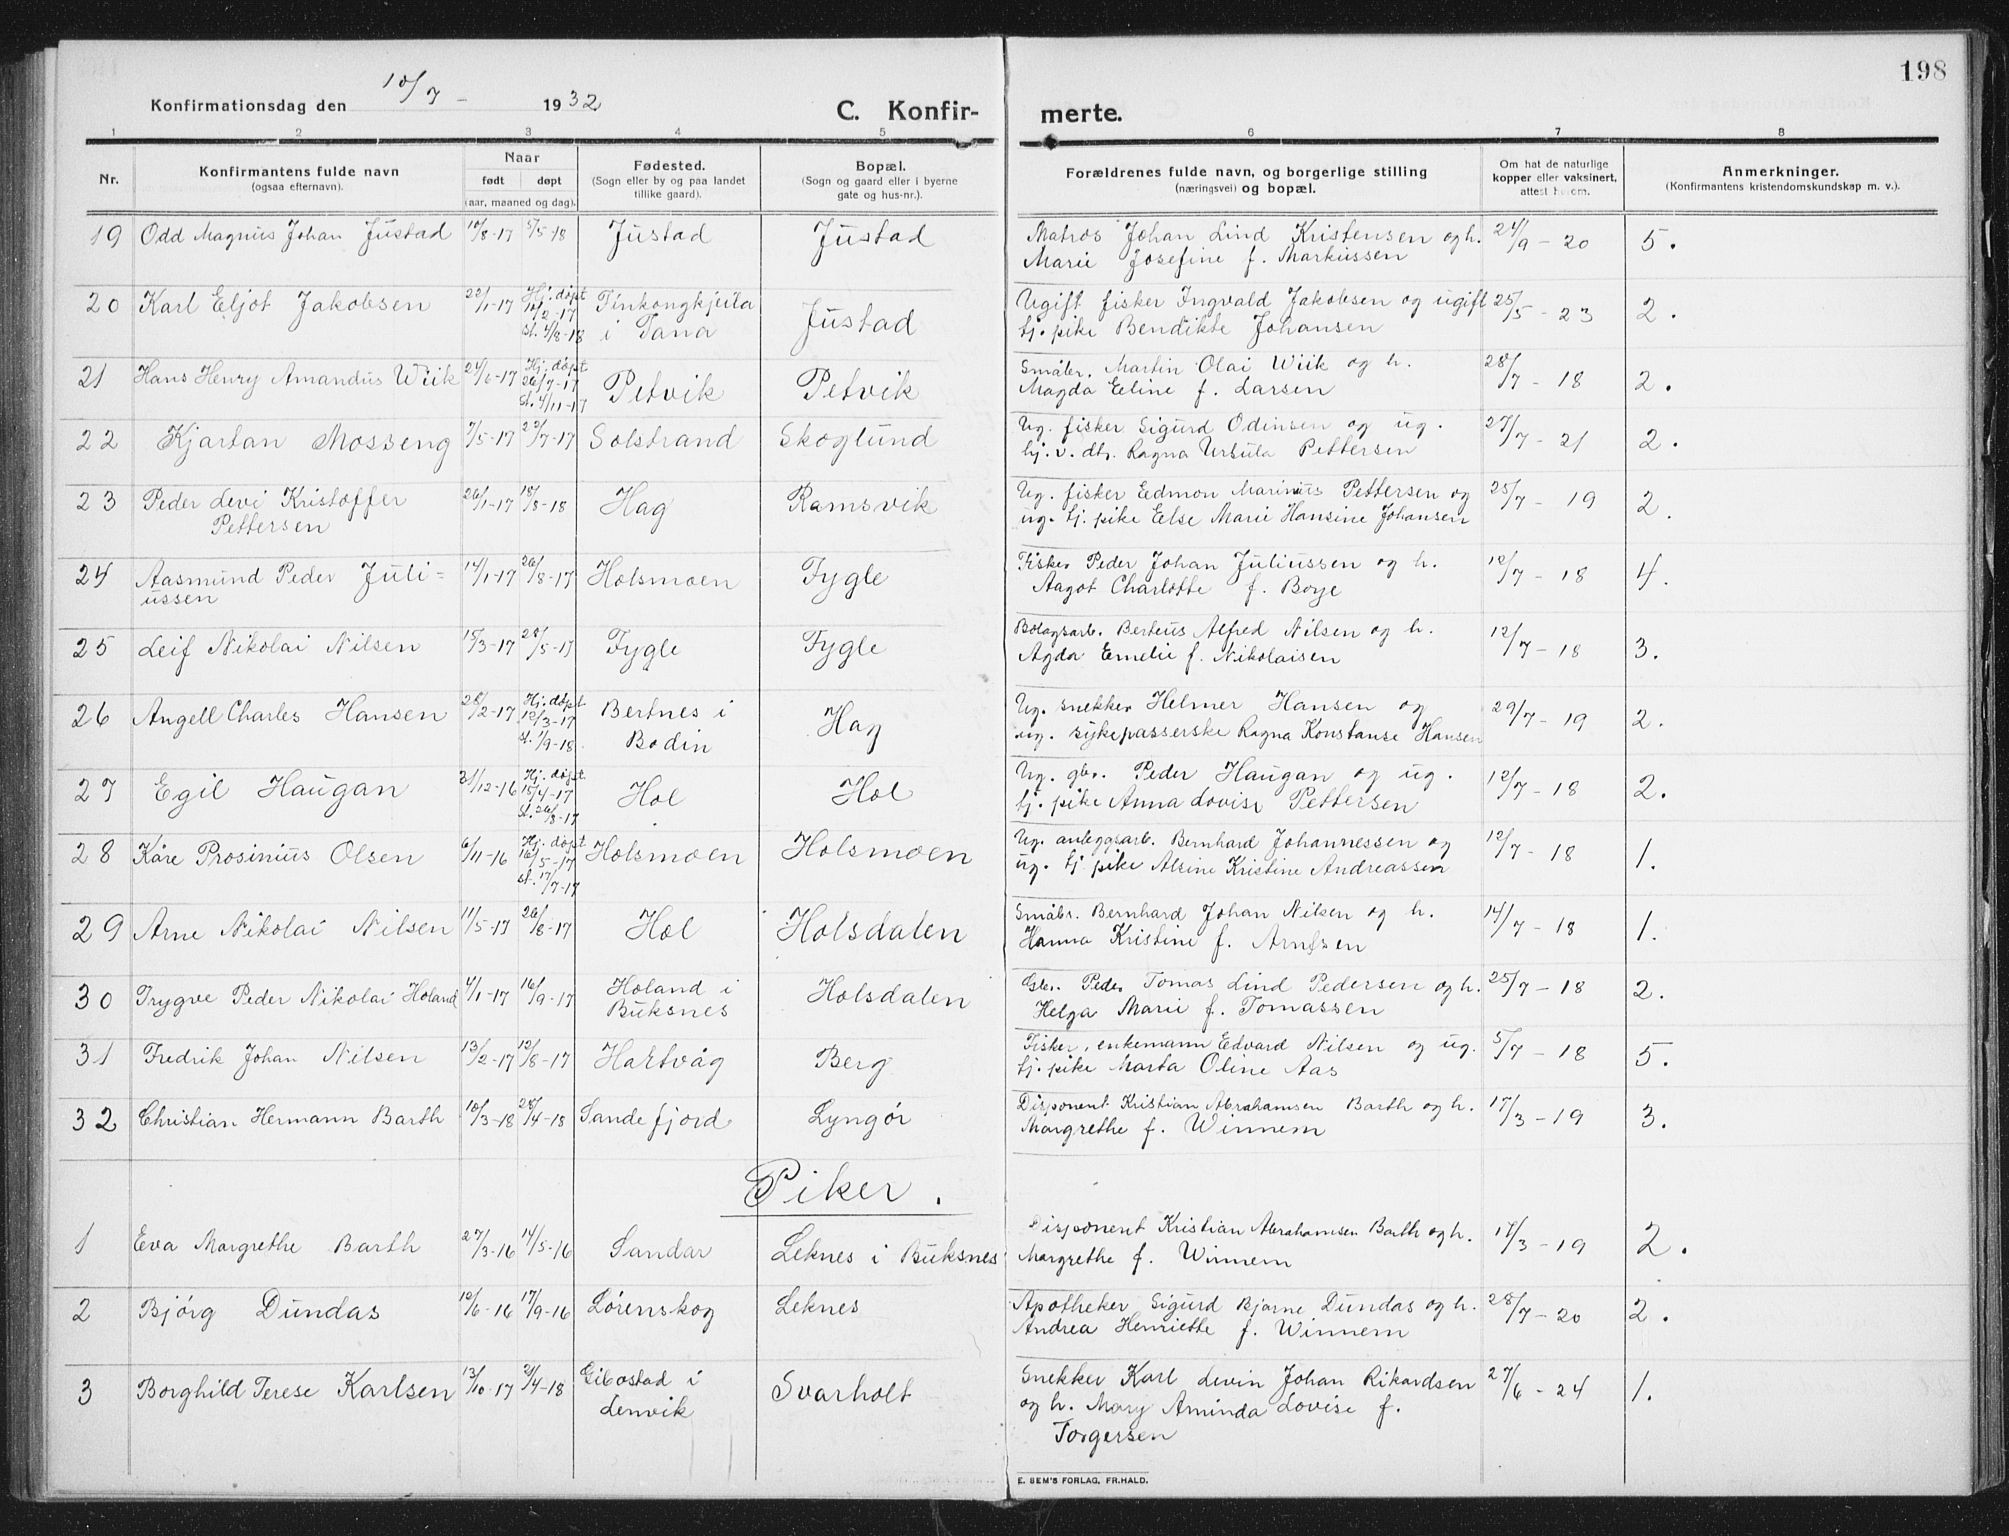 198
Konfirmationsdag den 10/7 - 1932
C. Konfir-merte.
1 2 3 4 5 6 7 8
Nr.
Konfirmantens fulde navn
(ogsaa efternavn).
Naar
født døpt
(aar, maaned og dag).
Fødested.
(Sogn eller by og paa landet
tillike gaard).
Bopæl.
(Sogn og gaard eller i byerne
gate og hus-nr.).
Forældrenes fulde navn, og borgerlige stilling
(næringsvei) og bopæl.
Om hat de naturlige
kopper eller vaksinert,
attest herom.
Anmerkninger.
(Konfirmantens kristendomskundskap m. v.).
19 Odd Magnus Johan Justad 10/8-17 5/5-18 Justad Justad Matros Johan Lind Kristensen og h. 24/9 - 20 5.
Marie Josefine f. Markussen
20 Karl Eljot Jakobsen 22/1-17 Hj. døpt Finkongkjeila Justad Ugift fisker Ingvald Jakobsen og ugift 25/5 - 23 2.
10/2-17
st. 4/8-18 i Tana tj. pike Bendikte Johansen
21 Hans Henry Amandus Wiik 24/6-17 Hj. døpt Petvik Petvik Småbr. Martin Olai Wiik og h. 28/7 - 18 2.
26/7-17
st. 4/11-17 Magda Eline f. Larsen
22 Kjartan Mosseng 7/5-17 22/7-17 Solstrand Skoglund Ug. fisker Sigurd Odinsen og ug. 27/7 - 21 2.
hj. v. dtr. Ragna Ursula Pettersen
23 Peder Levi Kristoffer 26/1-17 18/8-18 Hag Ramsvik Ug. fisker Edmon Marinius Pettersen og 25/7 - 19 2.
Pettersen ug. tj. pike Else Marie Hansine Johansen
24 Aasmund Peder Juli= 14/1-17 26/8-17 Holsmoen Fygle Fisker Peder Johan Juliussen og h. 12/7 - 18 4.
ussen Aagot Charlotte f. Borje
25 Leif Nikolai Nilsen 15/3-17 28/5-17 Fygle Fygle Bolagsarb. Berteus Alfred Nilsen og h. 12/7 - 18 3.
Agda Emelie f. Nikolaisen
26 Angell Charles Hansen 28/2-17 Hj. døpt Bertnes i Hag Ug. snekker Helmer Hansen og 29/7 - 19 2.
12/3-17
st. 1/9-18 Bodin ug. sykepasserske Ragna Konstanse Hansen
27 Egil Haugan 31/12-16 Hj. døpt Hol Hol Ug. gbr. Peder Haugan og ug. 12/7 - 18 2.
15/4-17
st. 26/8-17 tj. pike Anna Lovise Pettersen
28 Kåre Prosinius Olsen 6/11-16 Hj. døpt Holsmoen Holsmoen Ug. anleggsarb. Bernhard Johannessen og 12/7 - 18 1.
16/5-17
st. 17/7-17 ug. tj. pike Alsine Kristine Andreassen
29 Arne Nikolai Nilsen 11/5-17 26/8-17 Hol Holsdalen Småbr. Bernhard Johan Nilsen og h. 14/7 - 18 1.
Hanna Kristine f. Arntsen
30 Trygve Peder Nikolai Holand 4/1-17 16/9-17 Holand i Holsdalen Gbr. Peder Tomas Lind Pedersen og h. 25/7 - 18 2.
Buksnes Helga Marie f. Tomassen
31 Fredrik Johan Nilsen 13/2-17 12/8-17 Hartvåg Berg Fisker, enkemann Edvard Nilsen og ug. 5/7 - 18 5.
tj. pike Marta Oline Aas
32 Christian Hermann Barth 10/3-18 28/4-18 Sandefjord Lyngør Disponent Kristian Abrahamsen Barth og h. 17/3 - 19 3.
Margrethe f. Winnem
Piker.
1 Eva Margrethe Barth 27/3-16 14/5-16 Sandar Leknes i Buksnes Disponent Kristian Abrahamsen Barth og h. 17/3 - 19 2.
Margrethe f. Winnem
2 Bjørg Dundas 12/6-16 17/9-16 Lørenskog Leknes Apotheker Sigurd Bjarne Dundas og h. 28/7 - 20 2.
Andrea Henriette f. Winnem
3 Borghild Terese Karlsen 13/10-17 21/4-18 Gibostad i Svarholt Snekker Karl Levin Johan Rikardsen 27/6 - 24 1.
Lenvik og h. Mary Aminda Lovise f.
Torgersen
E. SEM'S FORLAG, FR.HALD.